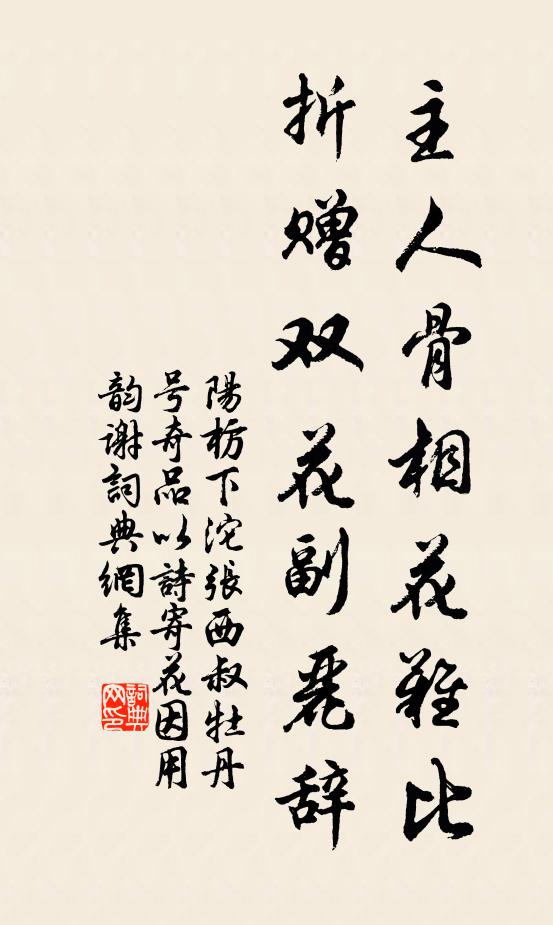 主人骨相花難比
折赠双花副麗辞
陽枋下沱張西叔牡丹
号奇品以詩寄花因用
韵谢詞典網集
詞典网印